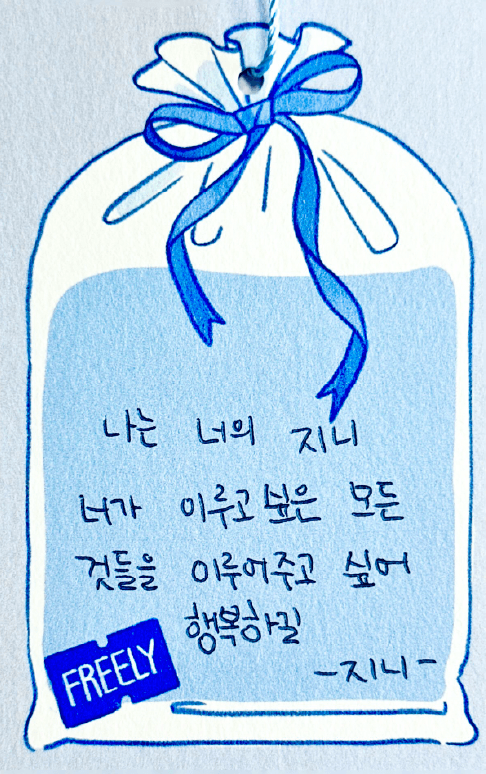 나는 너의 지니
너가 이루고싶은 모든
것들을 이루어주고 싶어
행복하길
-지니-
FREELY